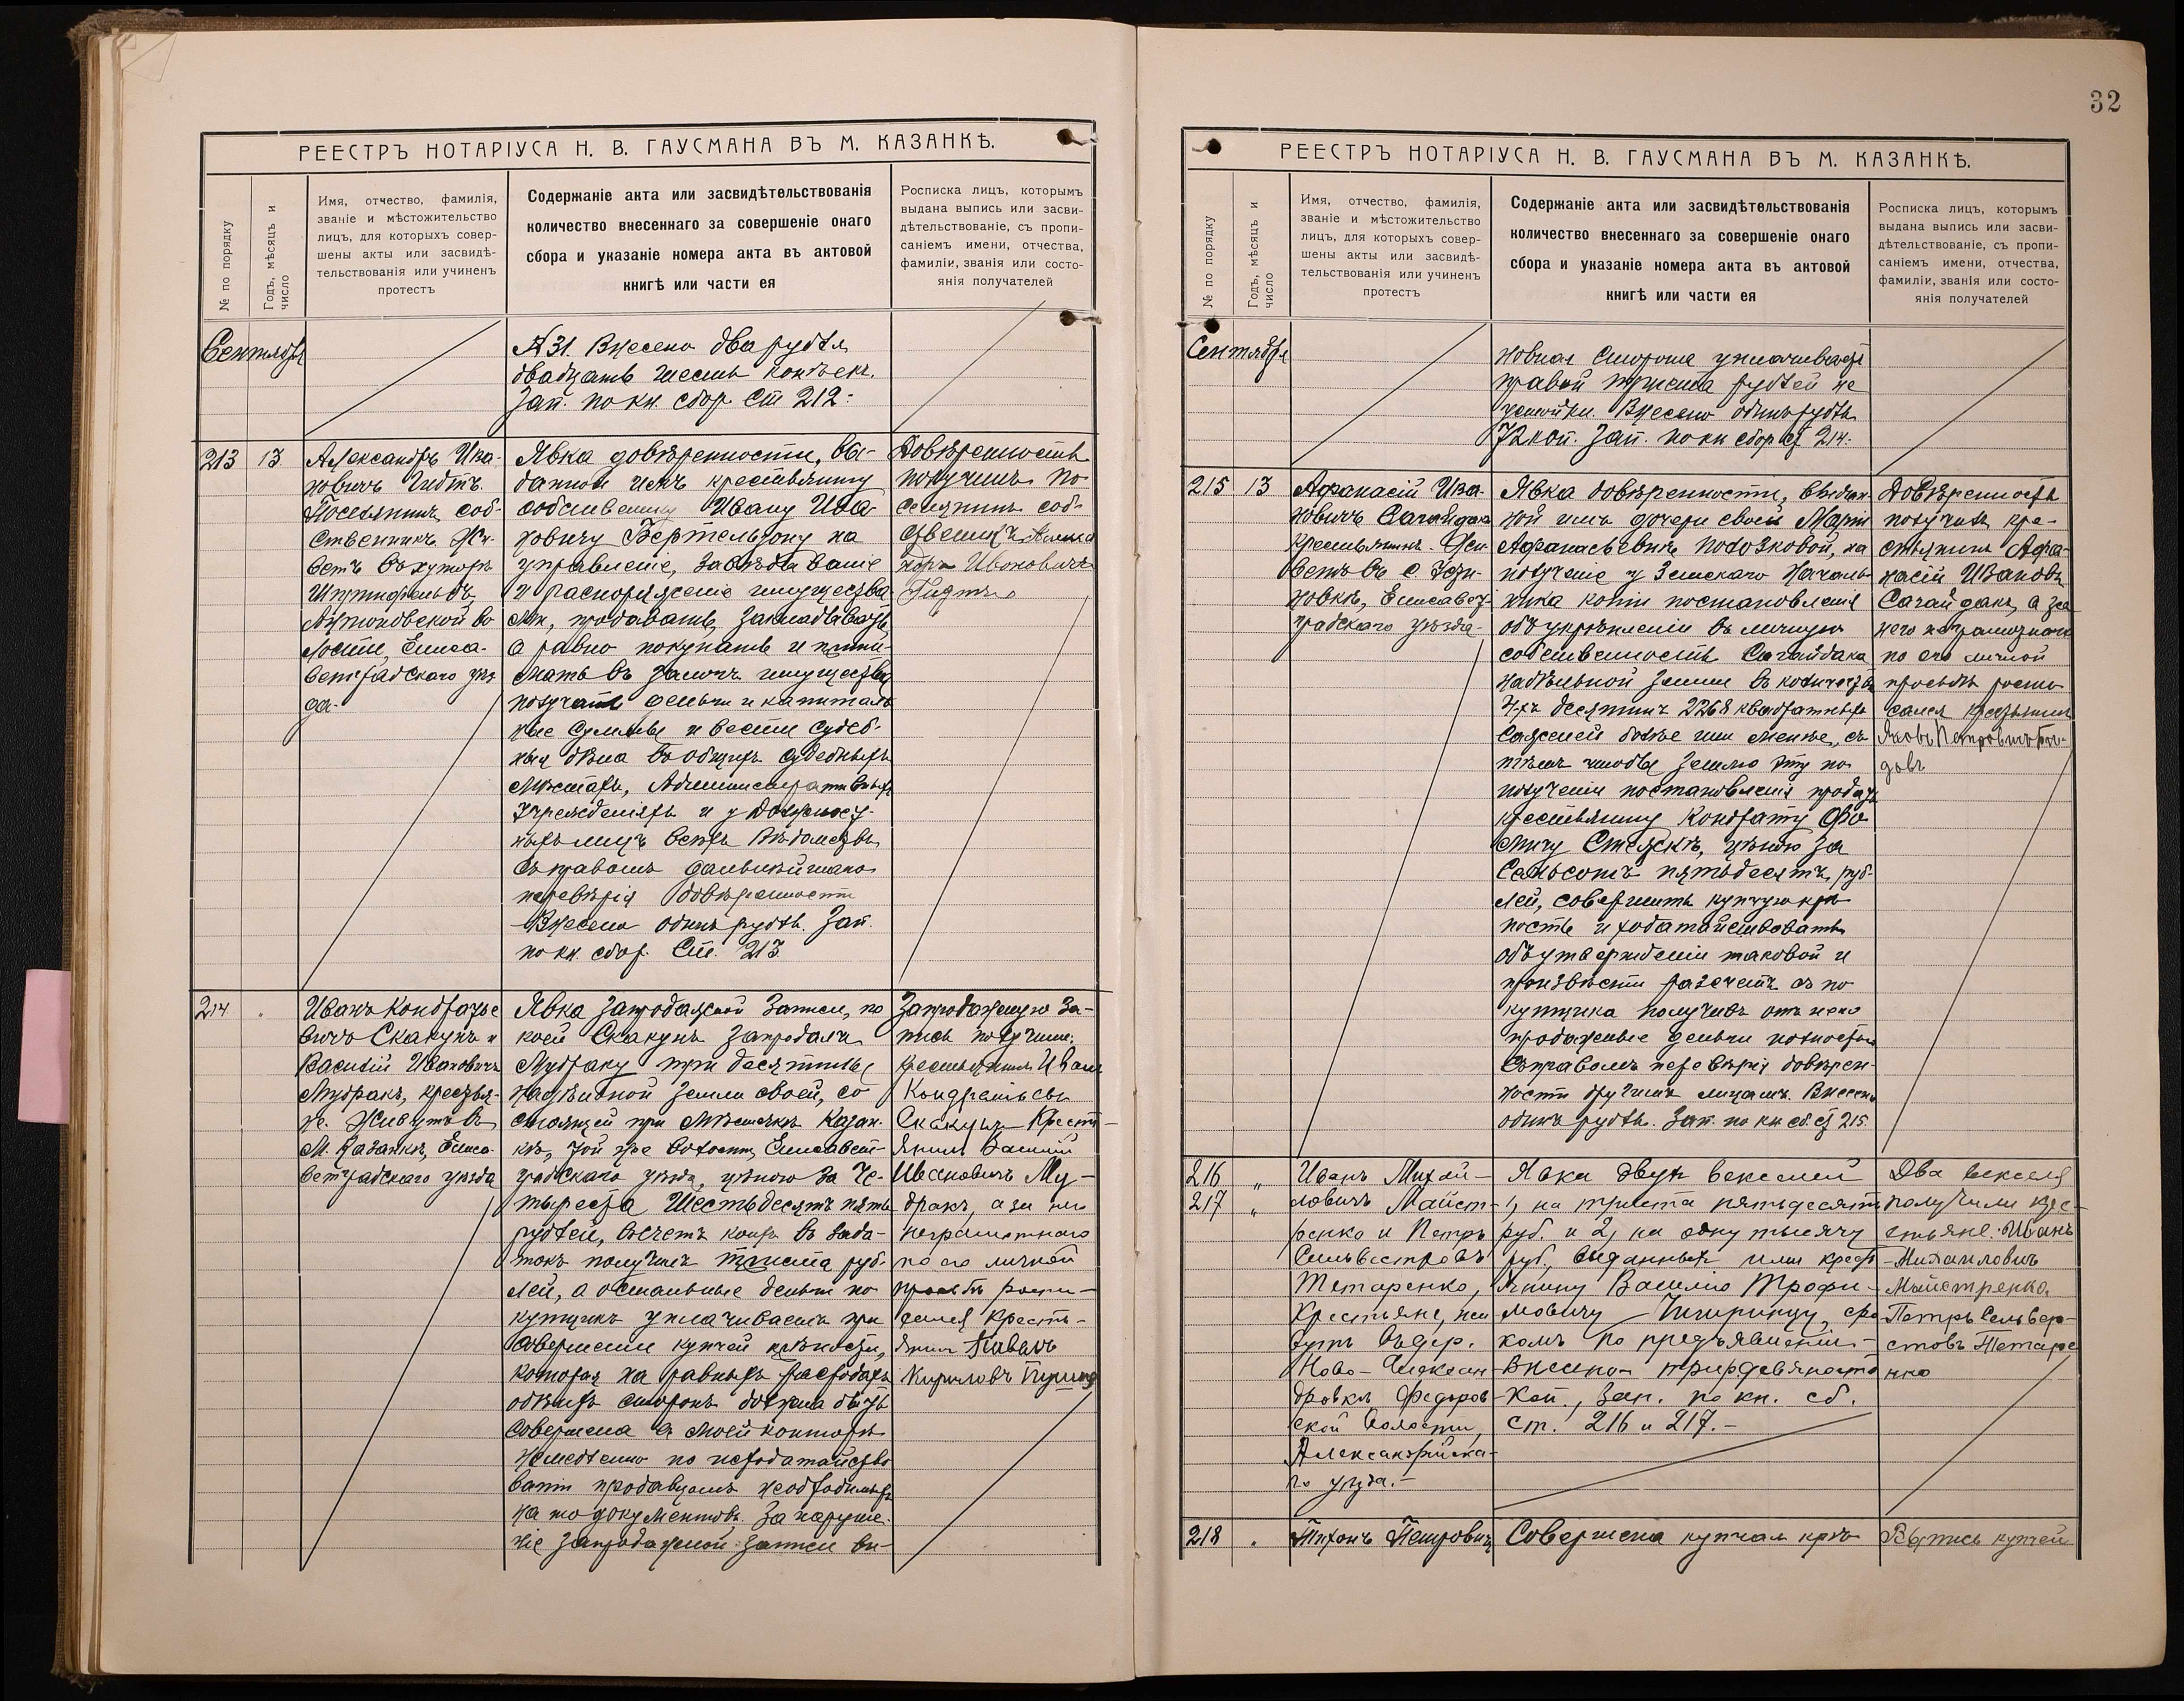 РЕЕСТРЪ НОТАРІУСА Н. В. ГАУСМАНА ВЪ М. КАЗАНКѢ.
№ по порядку
Годъ, мѣсяцъ и
число
Имя, отчество, фамилія,
званіе и мѣстожительство
лицъ, для которыхъ совер-
шены акты или засвидѣ-
тельствованія или учиненъ
протестъ
Содержаніе акта или засвидѣтельствованія
количество внесеннаго за совершеніе онаго
сбора и указаніе номера акта въ актовой
книгѣ или части ея
Росписка лицъ, которымъ
выдана выпись или засви-
дѣтельствованіе, съ пропи-
саніемъ имени, отчества,
фамиліи, званія или состо-
янія получателей
Сентября
№ 31. Внесено два рубля
двадцать шесть копѣекъ.
Зап. по кн. сбор. ст 212.
213 13.
Александръ Ива-
новичъ Гидтъ.
Поселянинъ соб-
ственникъ. Жи-
ветъ въ хуторѣ
во
лости, Елиса-
ветградскаго уѣз
да.
Явка довѣренности, вы-
данной имъ крестьянину
собственнику Ивану Ива
новичу Бертельзону на
управленіе, завѣдываніе
и распоряженіе имущества
ми, продавать, закладывать,
а равно покупать и прини-
мать въ залогъ имущества,
получать деньги и капиталь
ные суммы и вести судеб-
ныя дѣла въ общихъ судебныхъ
мѣстахъ, Административныхъ
Учрежденіяхъ и у должност-
ныхъ лицъ всѣхъ вѣдомствъ
съ правомъ дальнѣйшаго
перевѣрія довѣренности
Внесено одинъ рубль. Зап.
по кн. сбор. Ст. 213.
Довѣренность
получилъ По
селянинъ соб-
ственникъ Алекса
ндръ Ивановичъ
Гидтъ
214 "
Иванъ Кондратье
вичъ Скакунъ и
Василій Ивановичъ
Мудракъ, крестья-
не. Живутъ въ
М. Казанкѣ, Елиса-
ветградскаго уѣзда
Явка запродажной записи, по
коей Скакунъ запродалъ
Мудраку три десятины
надѣльной земли своей, со
стоящей при мѣстечкѣ Казан-
кѣ, той же волости, Елисавет-
градскаго уѣзда, цѣною за че-
тыреста шестьдесятъ пять
рублей, въ счетъ коихъ въ зада-
токъ получилъ триста руб-
лей, а остальные деньги по
купщикъ уплачиваетъ при
совершеніи купчей крѣпости,
которая на равныхъ расходахъ
обѣихъ сторонъ должна быть
совершена въ моей конторѣ
немедленно по исходатайство
ваніи продавцомъ необходимыхъ
на то документовъ. За наруше-
ніе запродажной записи ви-
Запродажную за-
пись получили:
крестьянинъ Иванъ
Кондратьевъ
Скакунъ Крестъ-
янинъ Василій
Ивановичъ Му-
дракъ, а за него
неграмотнаго
по его личной
просьбѣ роспи-
сался Крестъ-
янинъ
Кириловъ
32
РЕЕСТРЪ НОТАРІУСА Н. В. ГАУСМАНА ВЪ М. КАЗАНКѢ.
№ по порядку
Годъ, мѣсяцъ и
число
Имя, отчество, фамилія,
званіе и мѣстожительство
лицъ, для которыхъ совер-
шены акты или засвидѣ-
тельствованія или учиненъ
протестъ
Содержаніе акта или засвидѣтельствованія
количество внесеннаго за совершеніе онаго
сбора и указаніе номера акта въ актовой
книгѣ или части ея
Росписка лицъ, которымъ
выдана выпись или засви-
дѣтельствованіе, съ пропи-
саніемъ имени, отчества,
фамиліи, званія или состо-
янія получателей
Сентября
новная сторона уплачиваетъ
правой триста рублей не
устойки. Внесено одинъ рубль
72 коп. Зап. по кн сбор ст 214.
215 13
Афанасій Ива-
новичъ Сагайдакъ
крестьянинъ. Жи
ветъ въ с.
новкѣ, Елисавет
градскаго уѣзда
Явка довѣренности, выдан-
ной имъ дочери своей Маріи
Афанасьевнѣ Полозковой, на
полученіе у Земскаго Началь
ника копіи постановленія
объ укрѣпленіи въ личную
собственность Сагайдака
надѣльной земли въ количествѣ
4-хъ десятинъ 2268 квадратныхъ
саженей болѣе или менѣе, съ
тѣмъ чтобы землю эту по
полученіи постановленія продать
крестьянину Кондрату Фо
мичу цѣною за
семьсотъ пятьдесятъ руб-
лей, совершить купчую крѣ
пость и ходатайствовать
объ утвержденіи таковой и
произвести разсчетъ съ по
купщика получивъ отъ него
продажные деньги полностью
съ правомъ перевѣрія довѣрен-
ности другимъ лицамъ. Внесено
одинъ рубль. Зап. по кн сб. ст 215.
Довѣренность
получилъ кре-
стьянинъ Афа-
насій Ивановъ
Сагайдакъ, а за
него неграмотнаго
по его личной
просьбѣ роспи
сался крестьянинъ
Яковъ Петровичъ
довъ
216 "
217 "
Иванъ Михай-
ловичъ Майст-
ренко и Петръ
Сильвестровъ
Тетаренко,
Крестьяне, жи
вутъ въ дер.
Ново-Алексан
дровкѣ Федоров
ской волости,
Александрійска-
го уѣзда.-
Явка двухъ векселей
1, на триста пятьдесятъ
руб. и 2, на одну тысячу
руб., выданныхъ ими крест
янину Василію Трофи-
мовичу Чигринцу, сро
комъ по предъявленіи-
Внесено тридевяносто
Коп., Зап. по кн. сб.
ст. 216 и 217.-
Два векселя
получили крес-
тьяне: Иванъ
Михаиловичъ
Майстренко.
Петръ Сельвер-
стовъ Тетаре
нко
218 "
Тихонъ Петровичъ
Совершена купчая крѣ
Выпись купчей